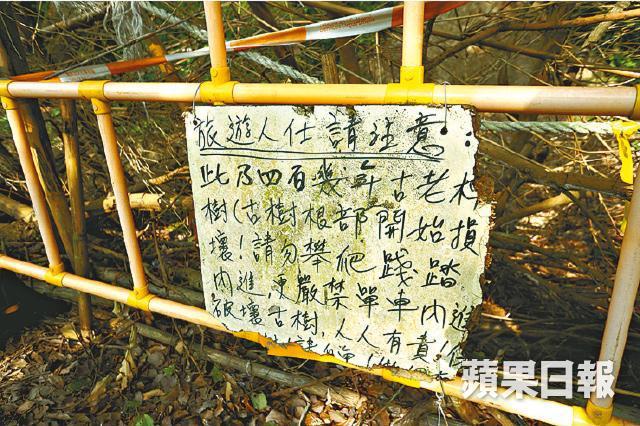 旅遊人仕請注意:
此乃四百幾年古老
樹(古樹根部開始損
壞!請勿攀爬踐踏
內進,更嚴禁單車內進
破壞古樹,人人有責!
蘋果日報